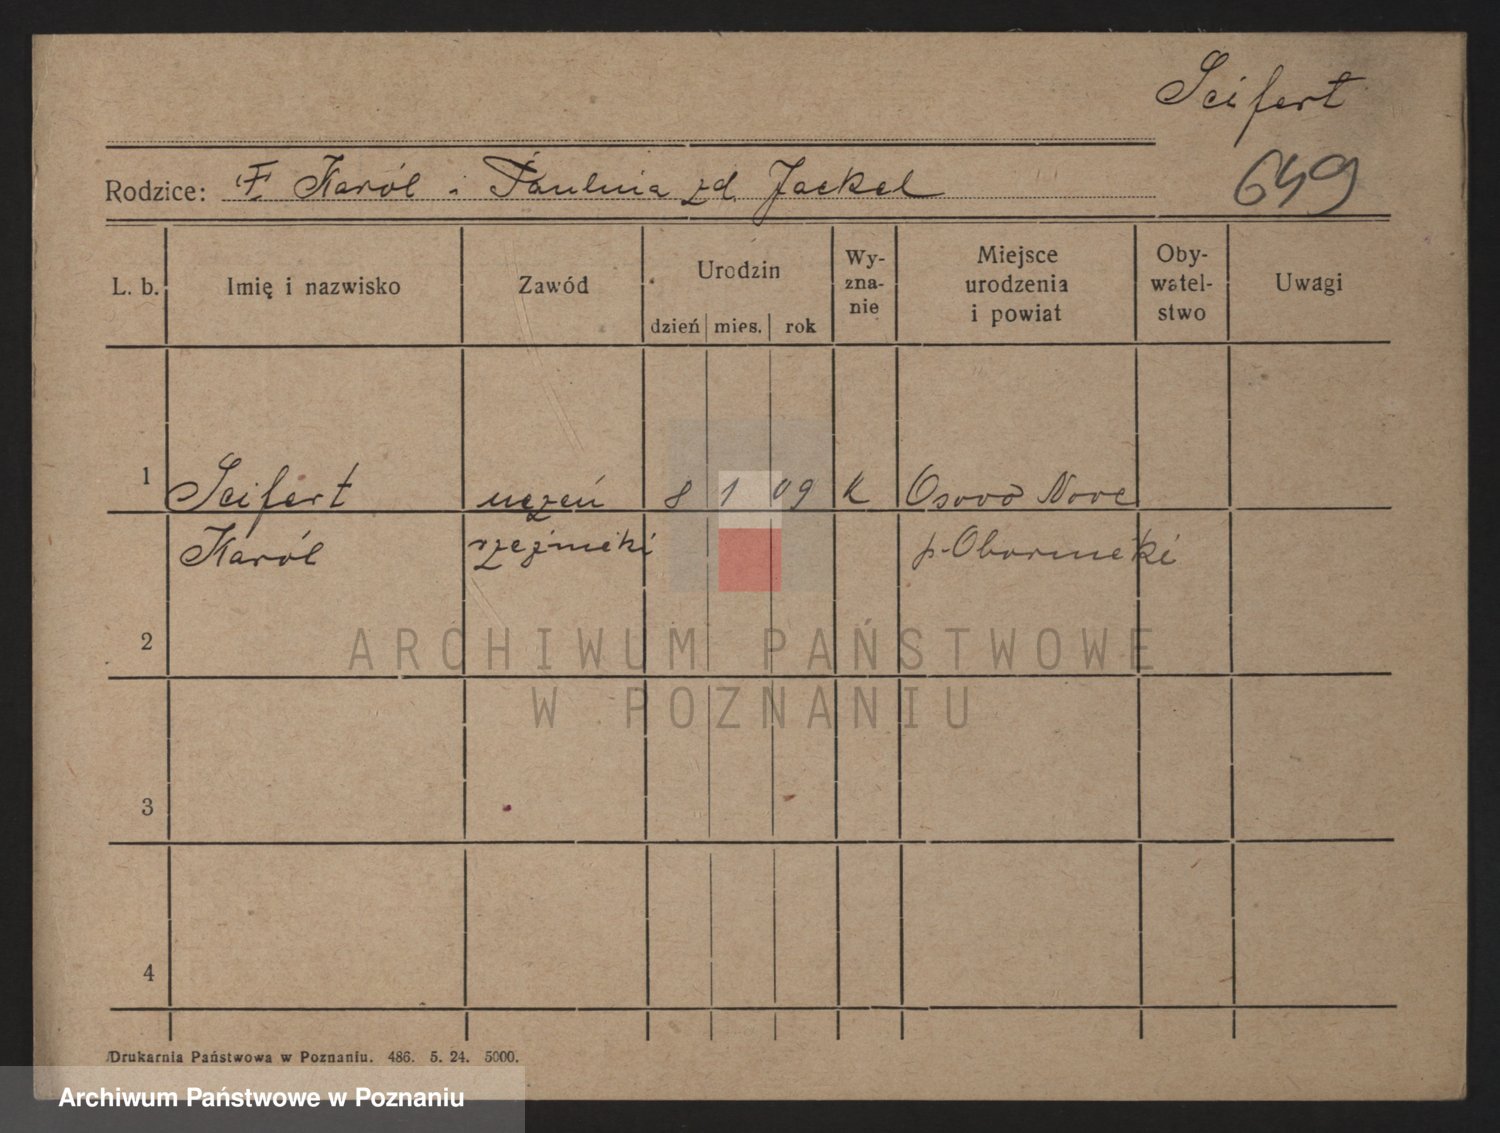 Seifert
649
Rodzice: F. Karól i Paulina zd. Jaekel
L. b. Imię i nazwisko Zawód Urodzin Wyznanie Miejsce urodzenia i powiat Obywatelstwo Uwagi
dzień mies. rok
1 Seifert uczeń 8 1 09 K Osowo Nowe
Karól rzeźnicki p. Obornicki
2
ARCHIWUM PAŃSTWOWE
W POZNANIU
3
4
Drukarnia Państwowa w Poznaniu. 486. 5. 24. 5000.
Archiwum Państwowe w Poznaniu